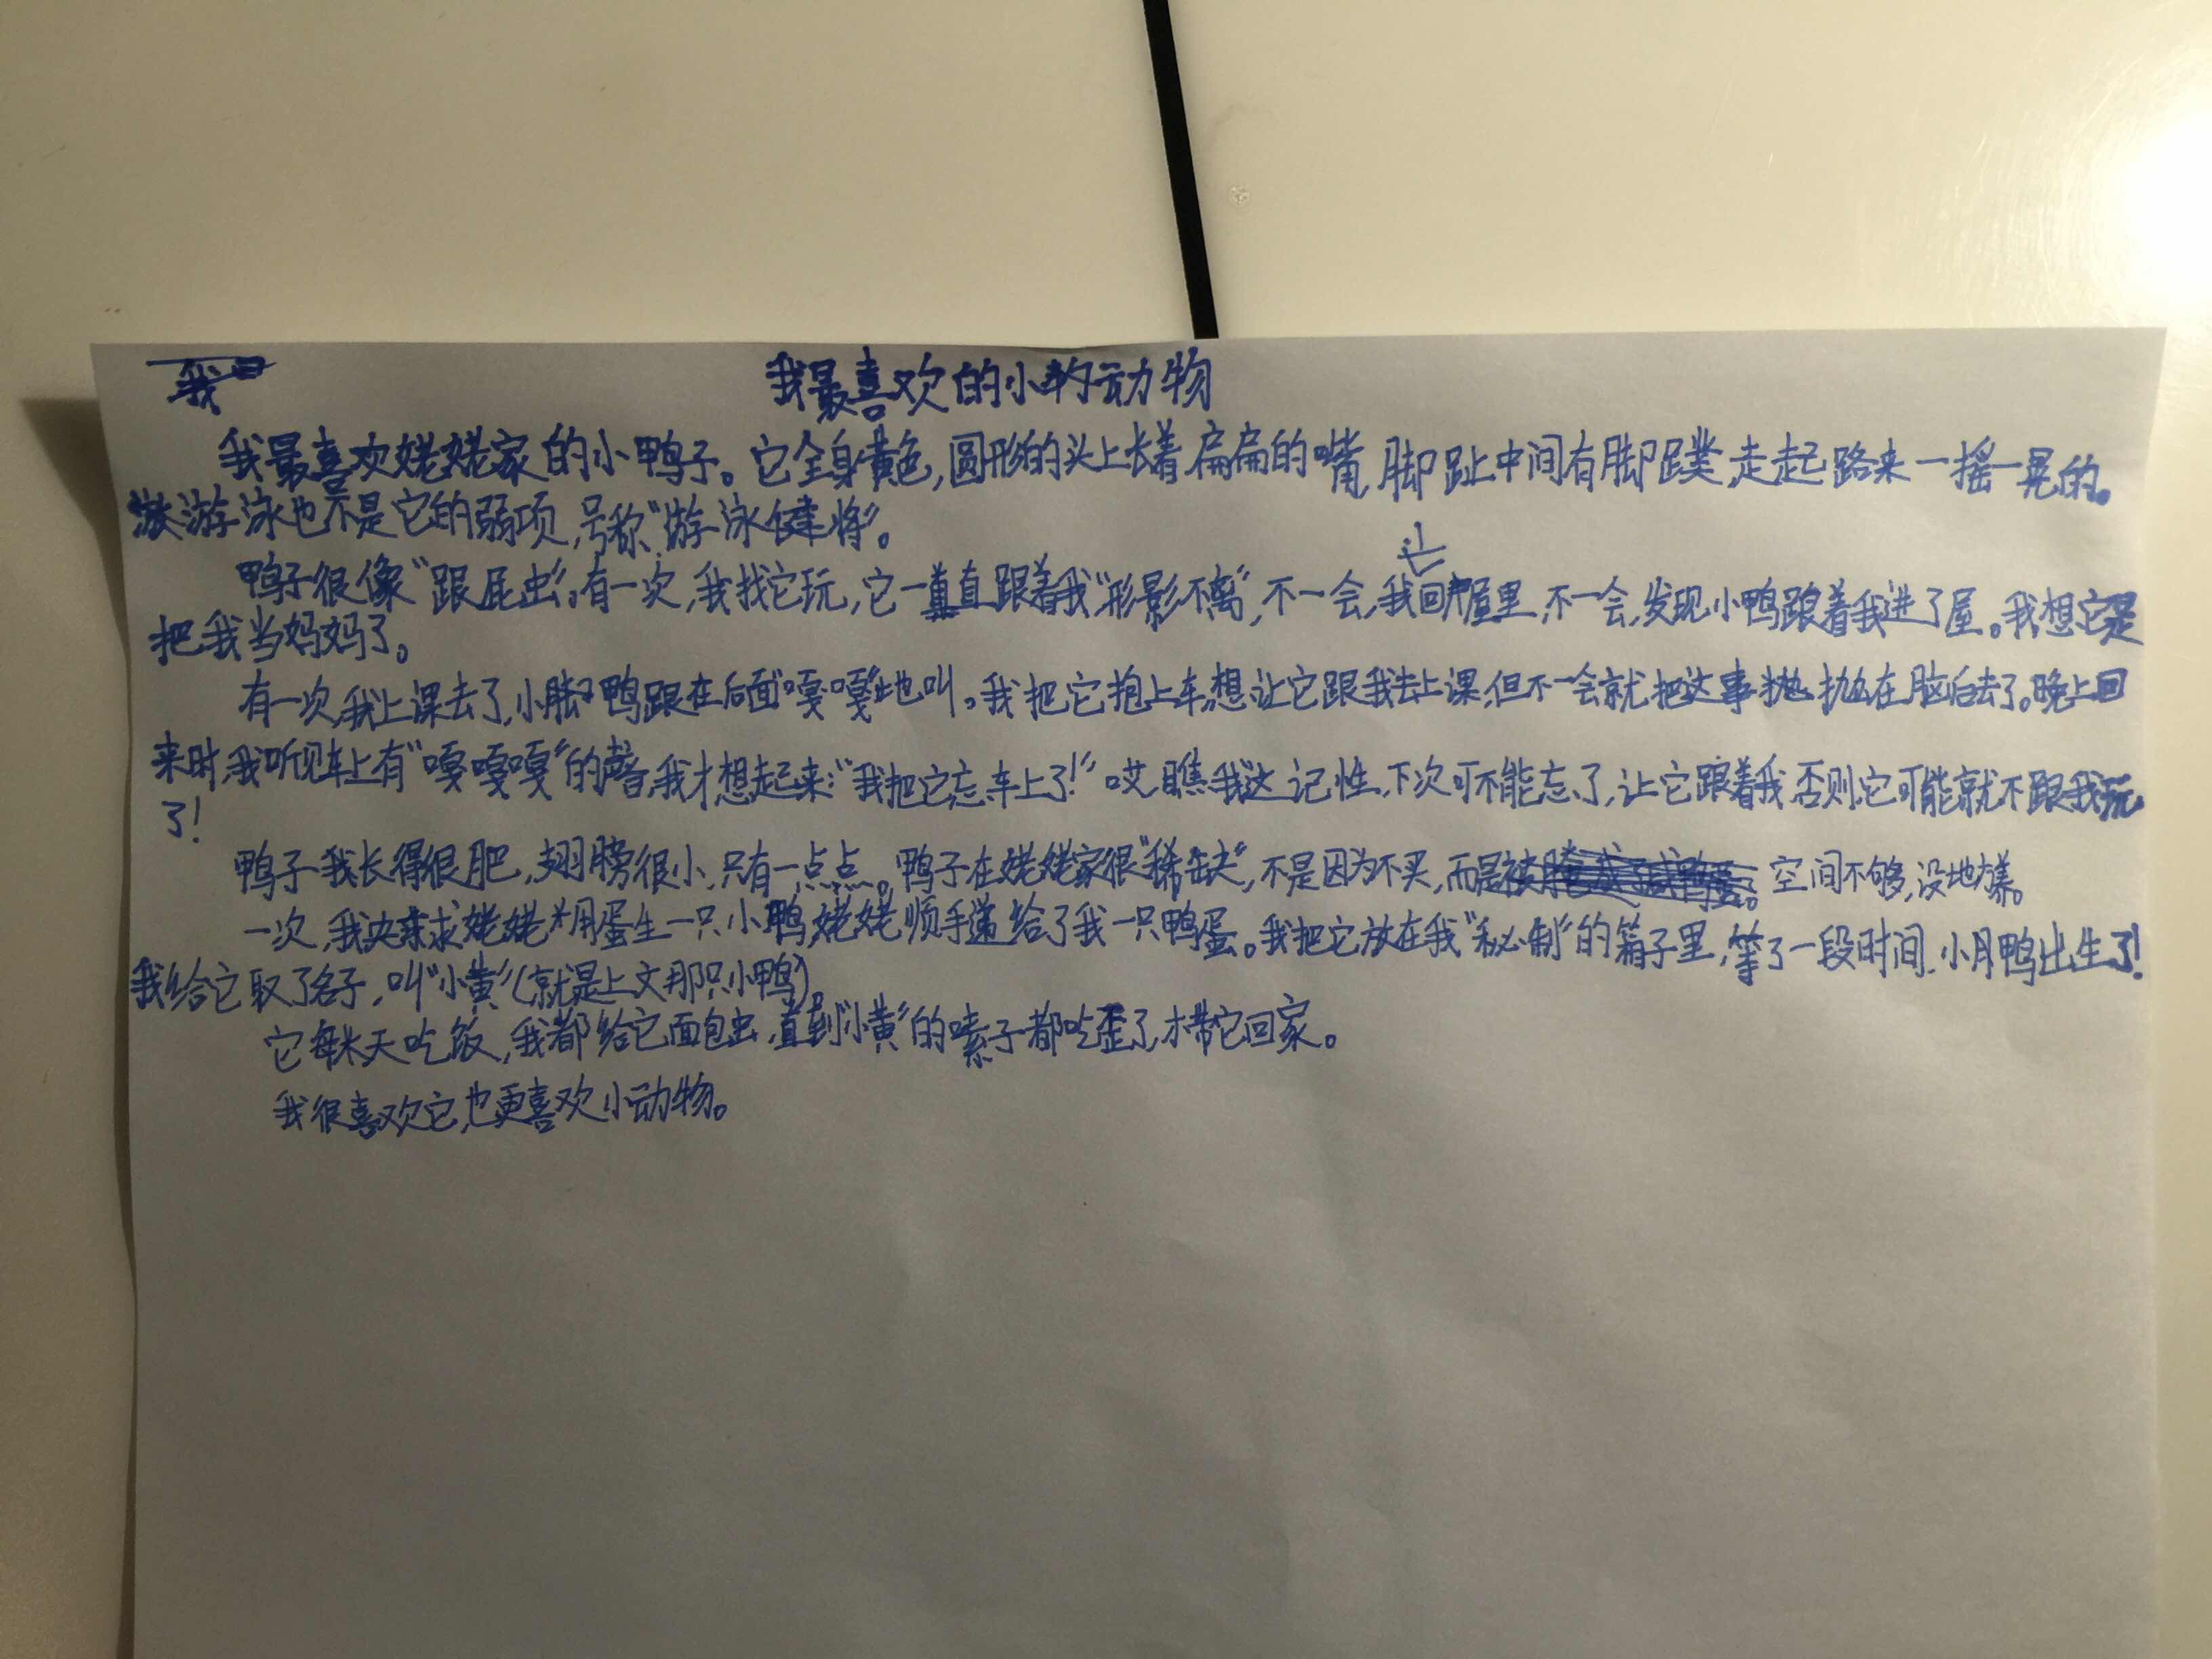 我最喜欢的小动物
我最喜欢姥姥家的小鸭子。它全身黄色,圆形的头上长着扁扁的嘴,脚趾中间有脚蹼,走起路来一摇一晃的。
游泳也不是它的弱项,号称“游泳健将”。
鸭子很像“跟屁虫”。有一次,我找它玩,它一直跟着我“形影不离”,不一会,我回屋里,不一会,发现小鸭跟着我进了屋。我想它是
把我当妈妈了。
有一次,我上课去了,小鸭跟在后面“嘎嘎”地叫。我把它抱上车,想让它跟我去上课,但不一会就把这事抛在脑后去了。晚上回
来时,我听见车上有“嘎嘎嘎”的声音,我才想起来:“我把它忘车上了!”哎,瞧我这记性,下次可不能忘了,让它跟着我,否则,它可能就不跟我玩
了!
鸭子长得很肥,翅膀很小,只有一点点。鸭子在姥姥家很“稀缺”,不是因为不买,而是空间不够,没地方养。
一次,我央求姥姥用蛋生一只小鸭,姥姥顺手递给了我一只鸭蛋。我把它放在我“秘制”的箱子里,等了一段时间,小鸭出生了!
我给它取了名子,叫“小黄”(就是上文那只小鸭)。
它每天吃饭,我都给它面包虫,直到“小黄”的嗉子都吃歪了,才带它回家。
我很喜欢它,也更喜欢小动物。